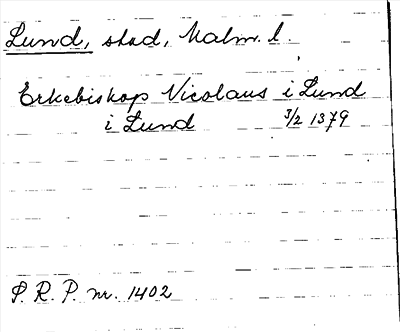 Lund, stad, Malm. l.
Erkebiskop Nicolaus i Lund
i Lund 3/2 1379
P. R. P. nr. 1402